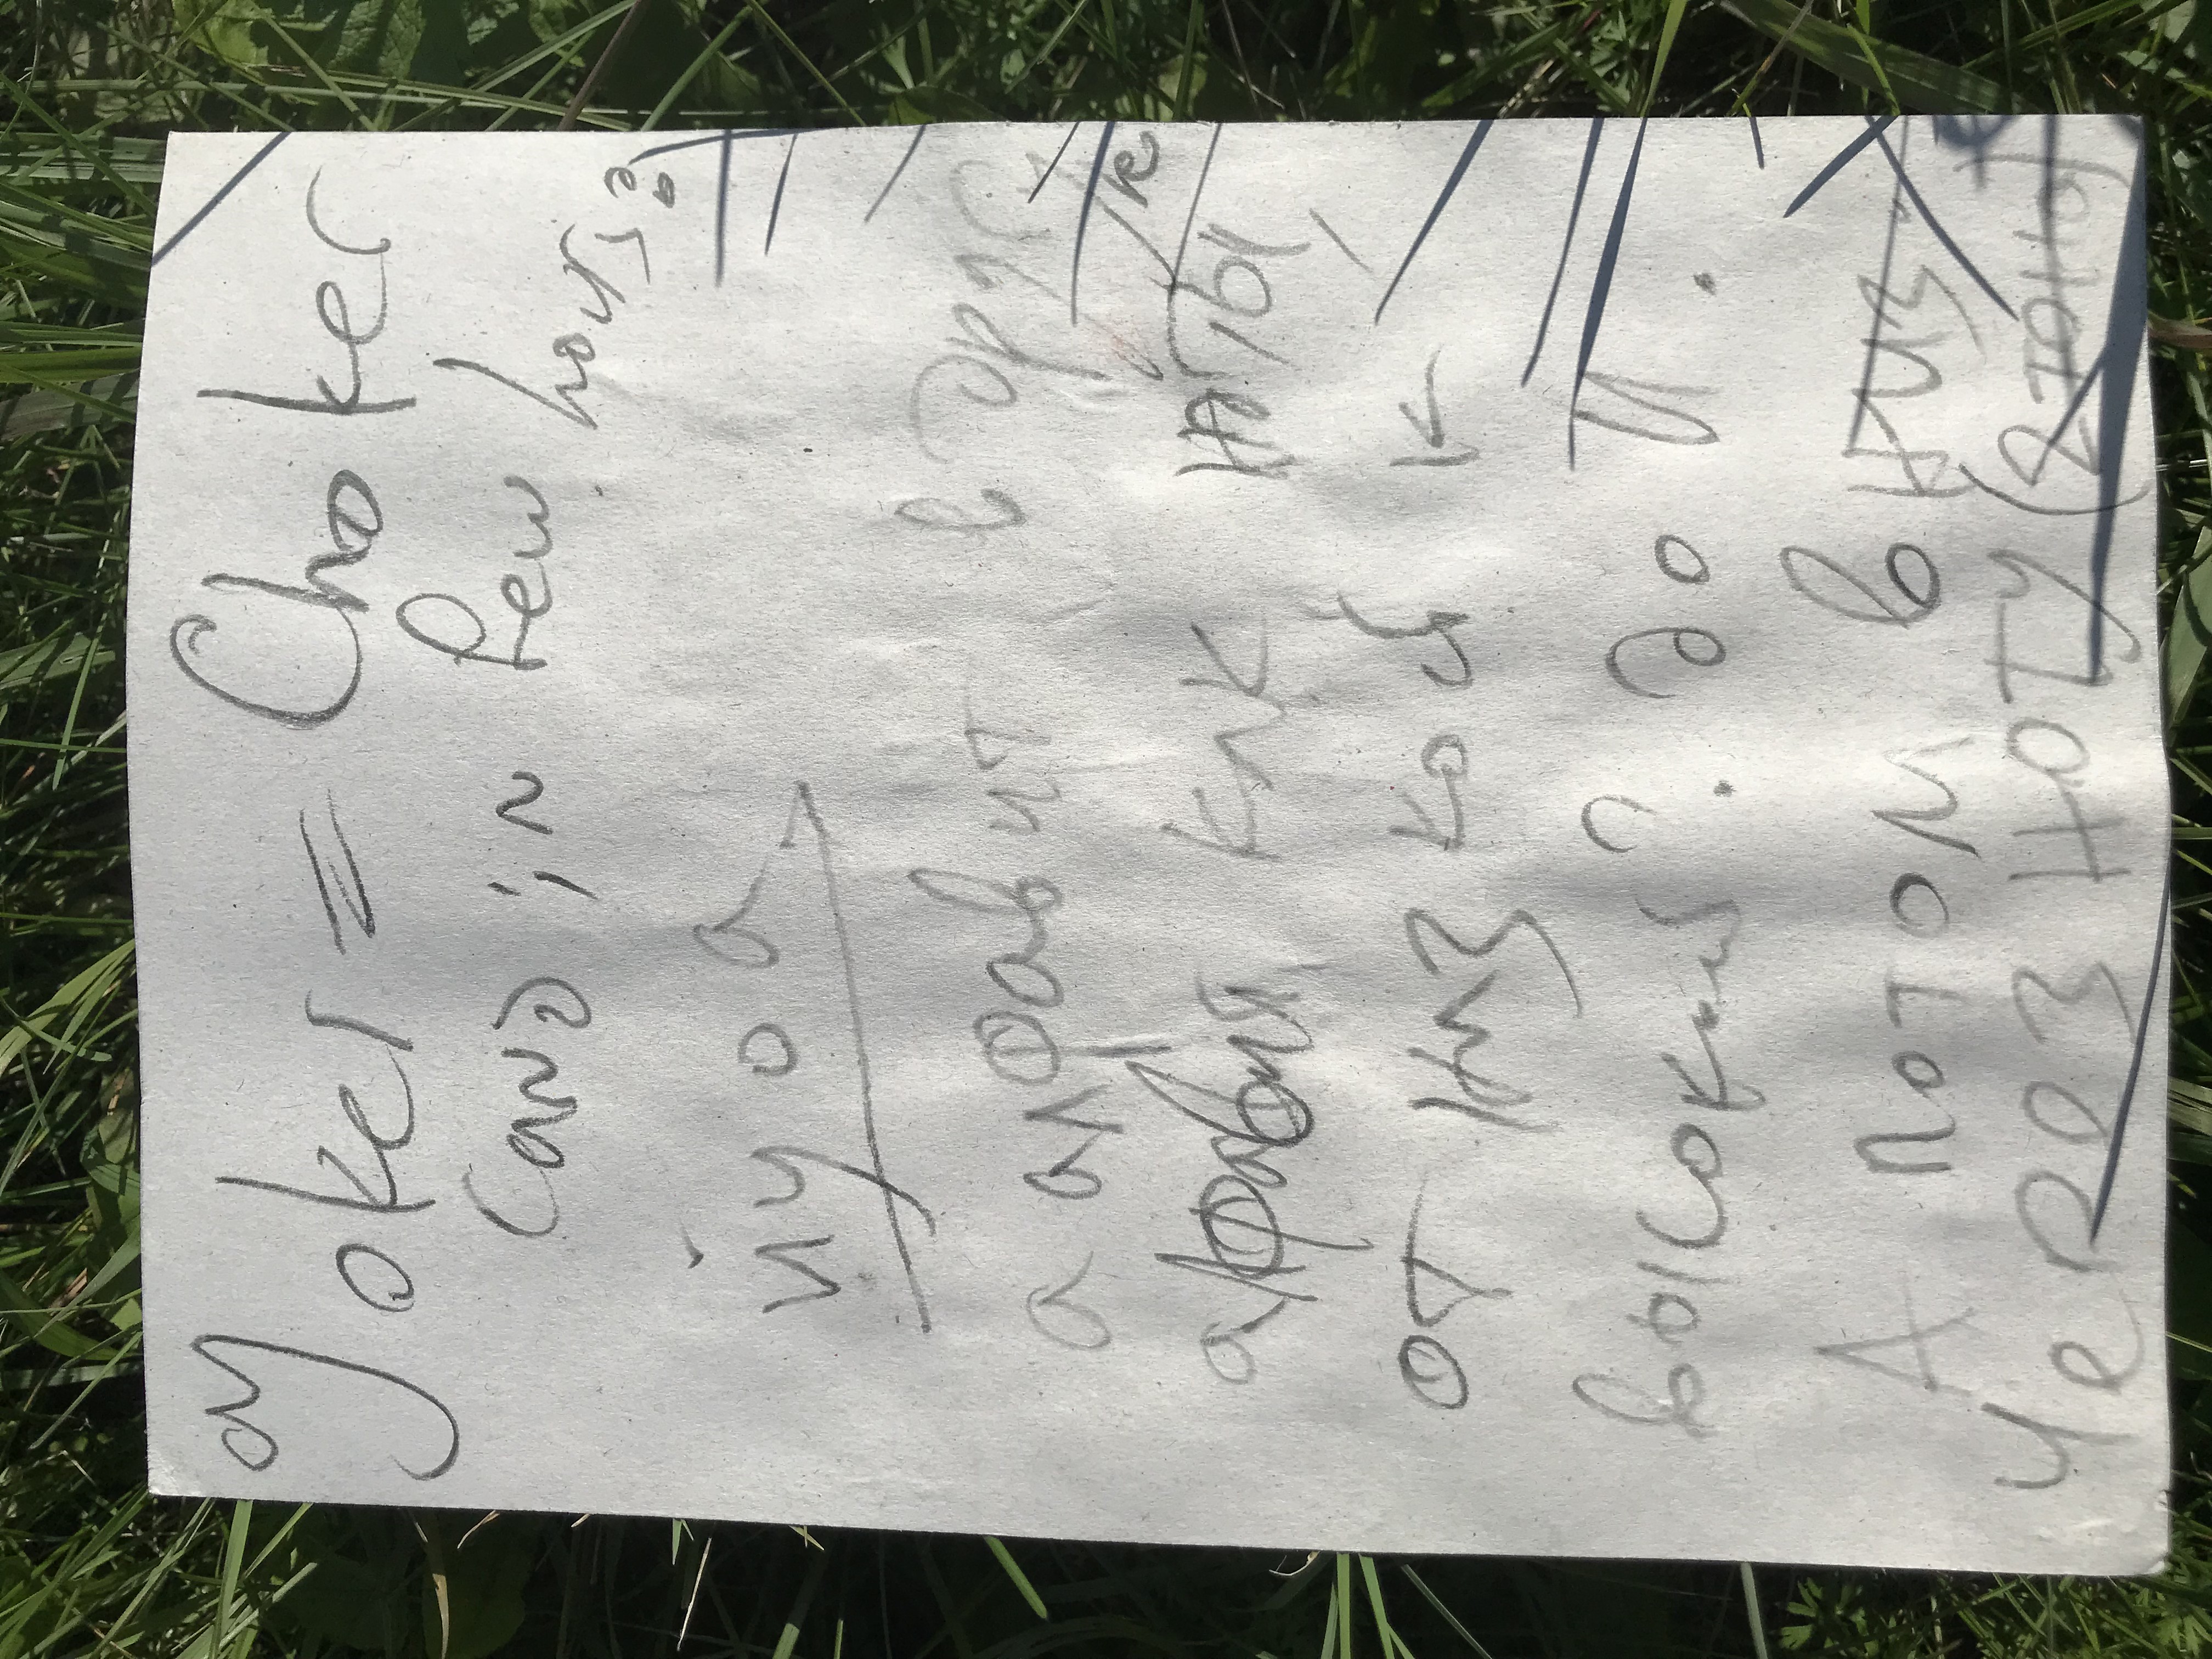 Joker = Choker
Cand in few hours?
йуоа
а алфавит в друг
алфавит как ноты
от низкой к
высокой? до И.
А потом вниз
Через ноту (2 тона)